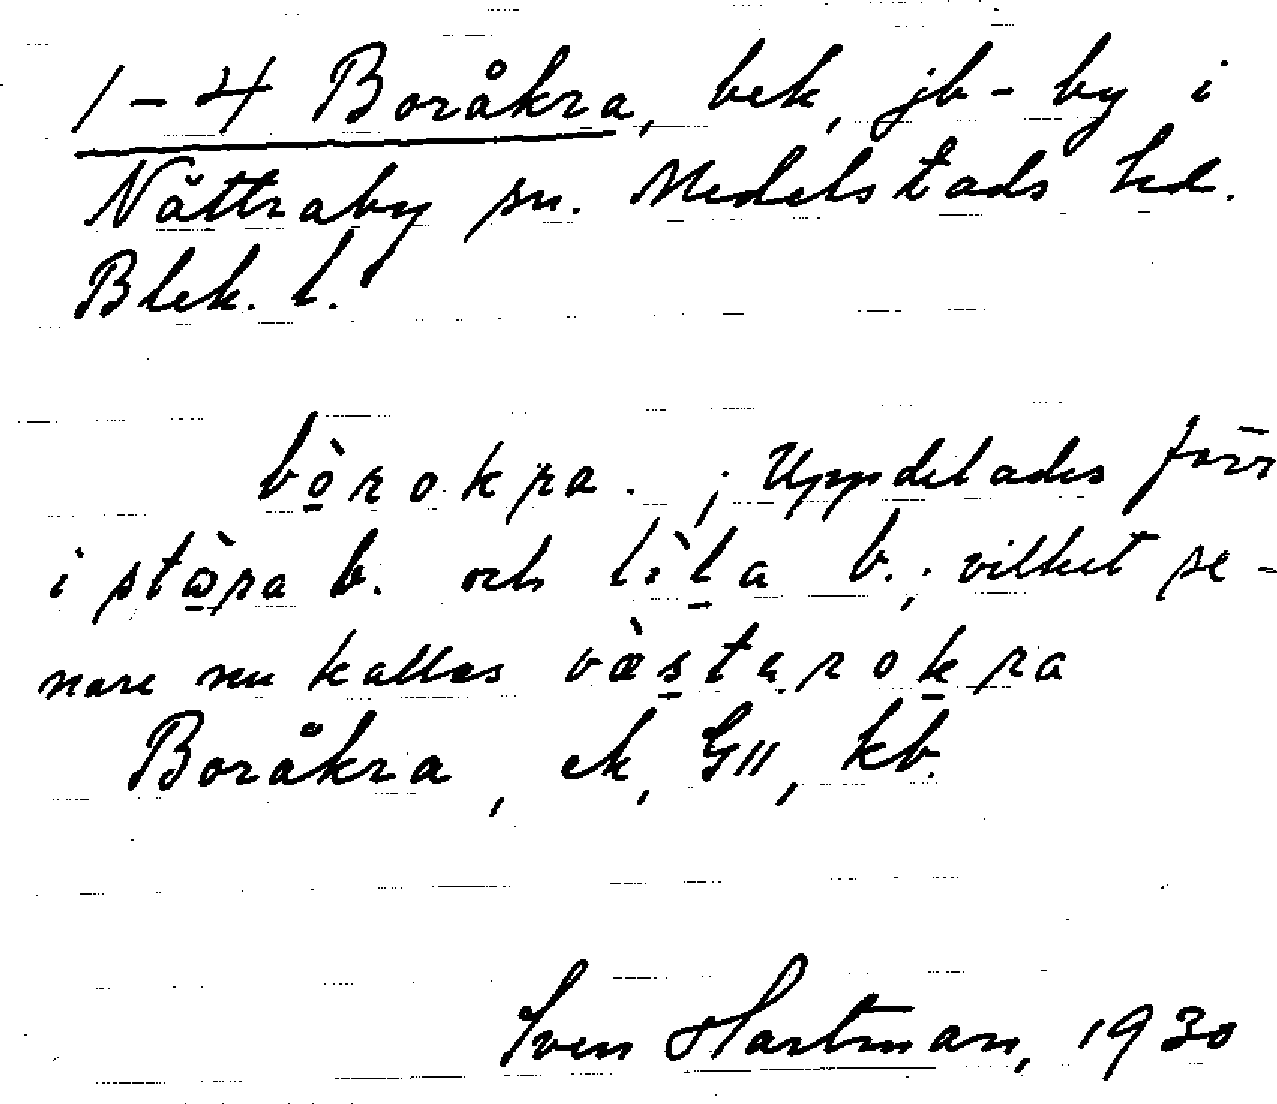 1-4 Boråkra, bek, jb-by i
Nättraby sn. Medelstads hd.
Blek. l.
bòrokra. ; Uppdelades förr
i stòra b. och lìta b.; vilket se-
nare nu kallas væ̀starokra
Boråkra, ek, G11, kb.
Sven Hartman, 1930